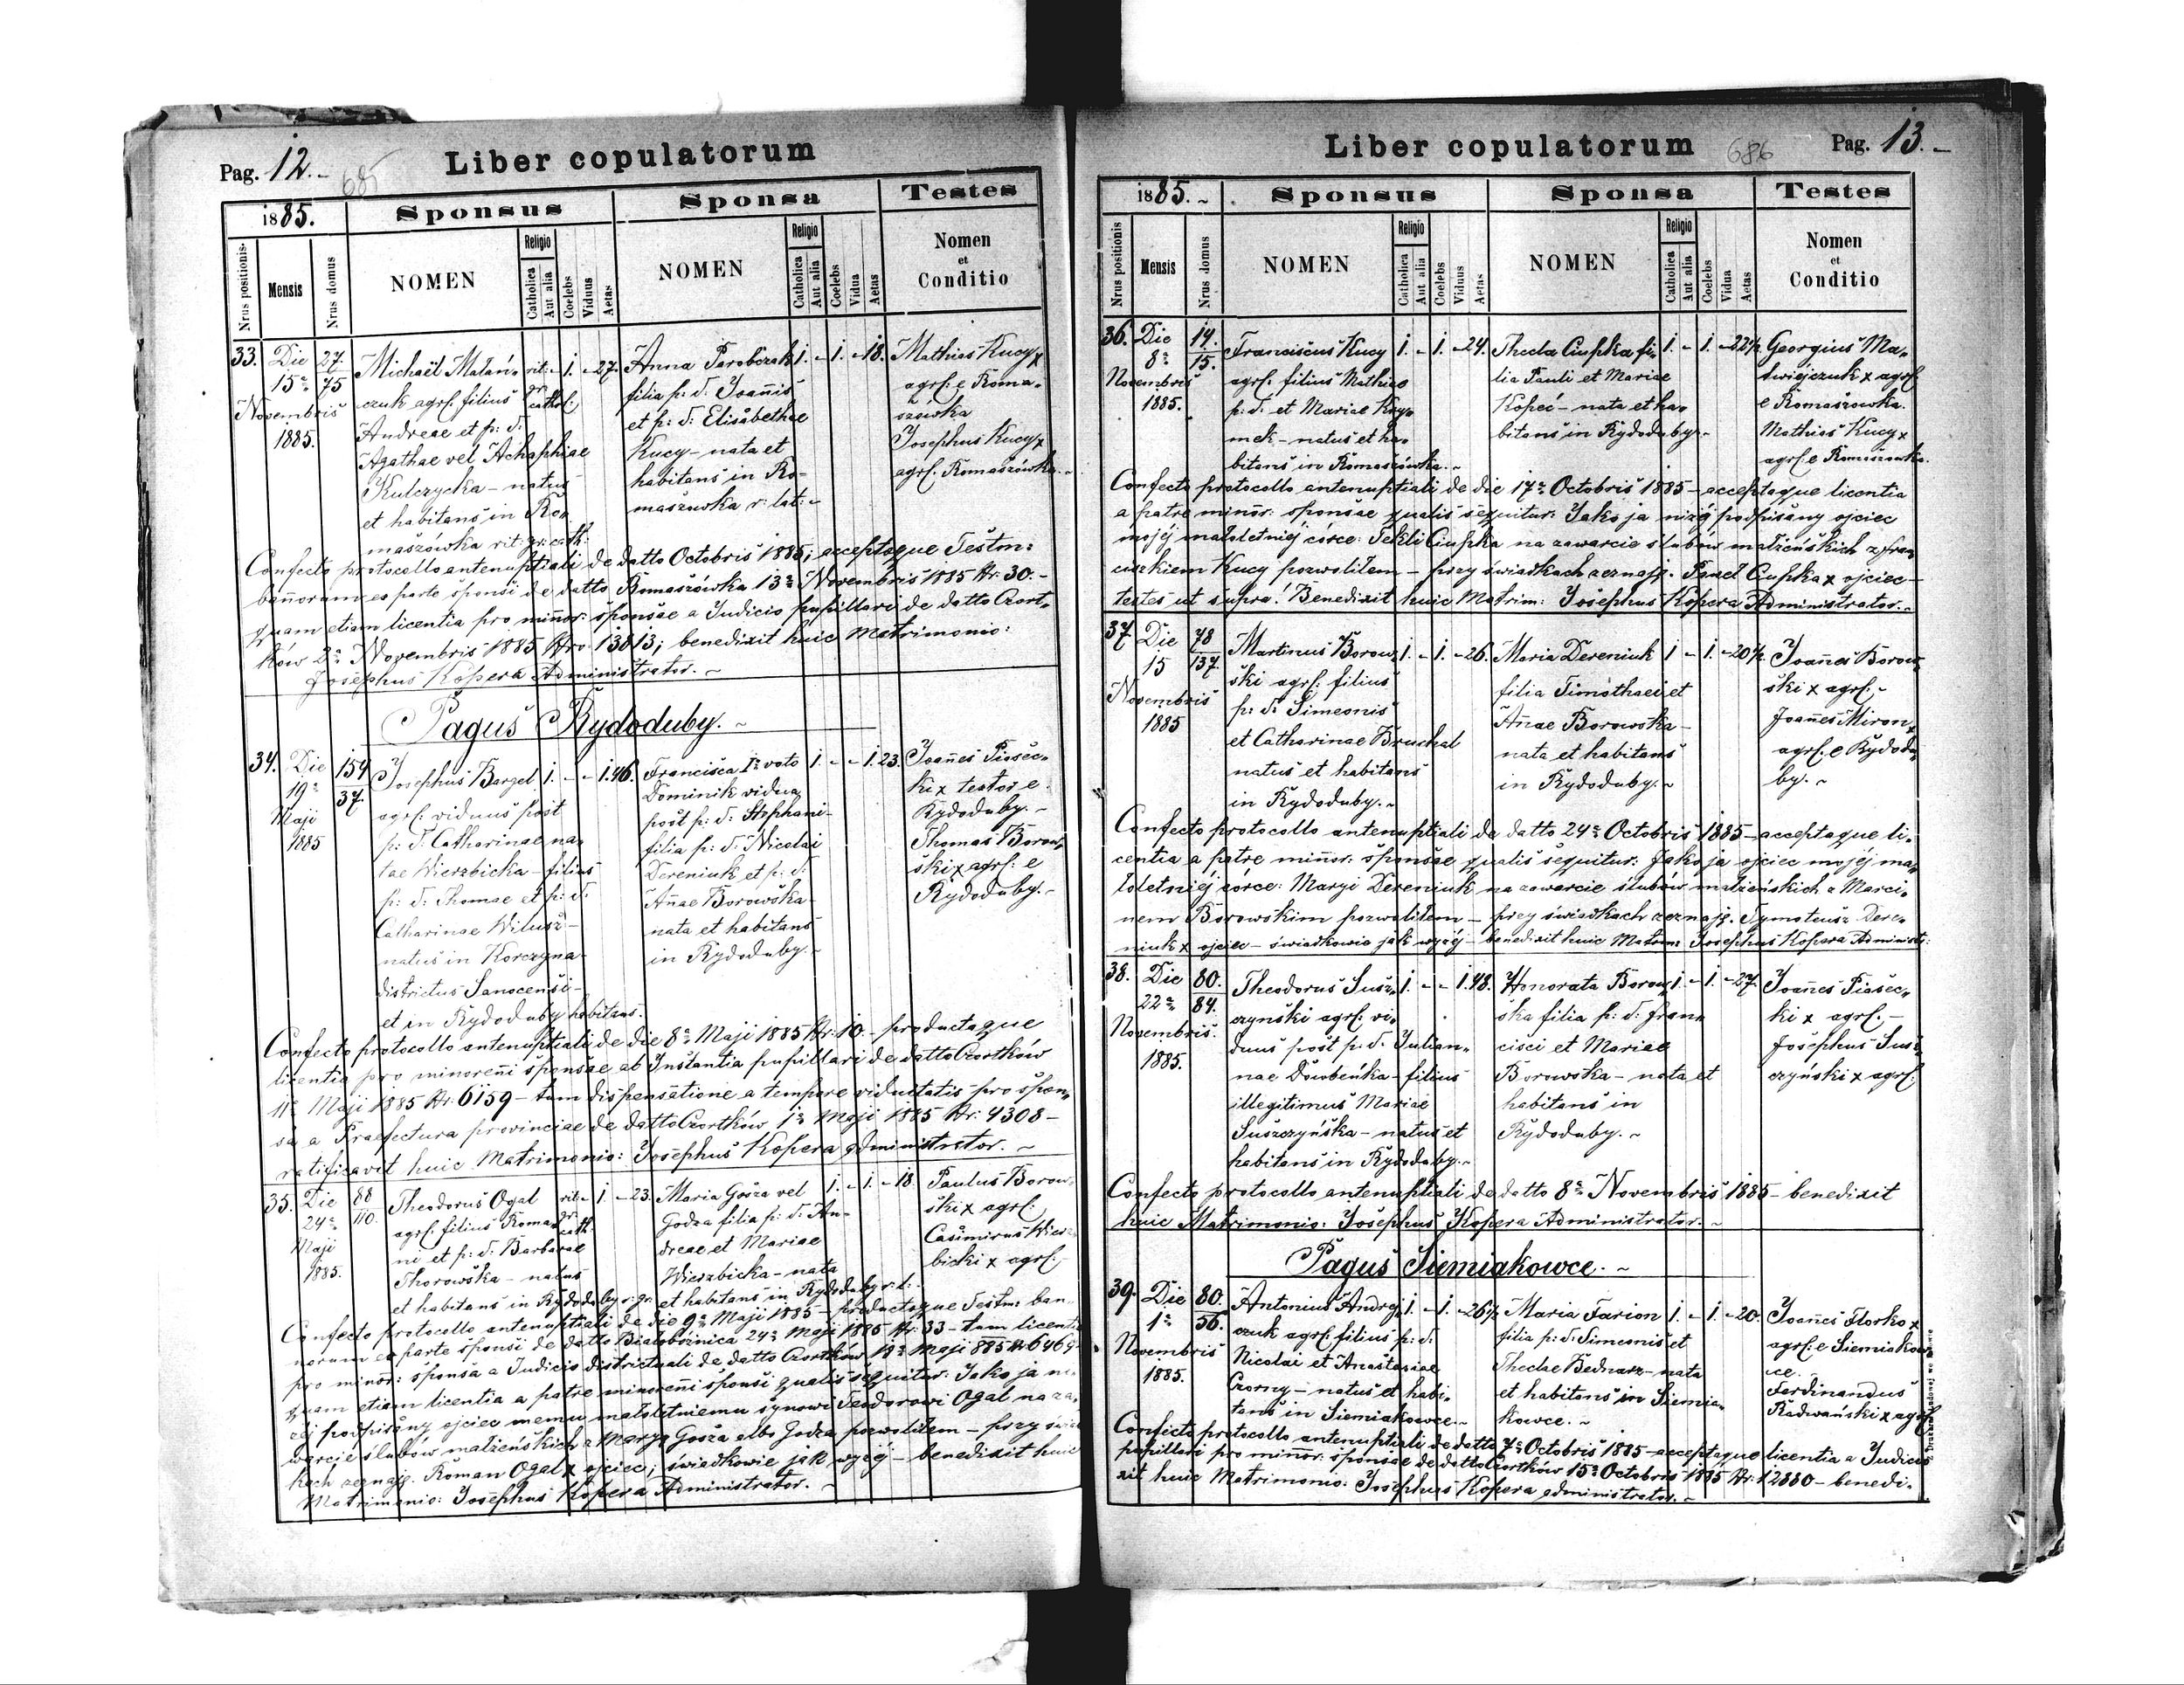 Pag. 12.-
685
Liber copulatorum
1885.
Sponsus
Sponsa
Testes
Nrus positionis
Mensis
Nrus domus
NOMEN
Religio
Catholica
Aut alia
Coelebs
Viduus
Aetas
NOMEN
Religio
Catholica
Aut alia
Coelebs
Vidua
Aetas
Nomen
et
Conditio
33.
Die
15ª
Novembris
1885.
27
75
Michaël Malań-
czuk agrl. filius
Andreae et p: d:
Agathae vel Achaphiae
Kulczycka – natus
et habitans in Ro„
maszówka rit. gr: cath:
rit:
gr.
cathol:
- 1. - 27.
Anna Parobczak
filia p: d: Joannis
et p: d: Elisabethae
Kucy – nata et
habitans in Ro-
maszuwka r: lat: –
1. - 1. - 18.
Mathias Kucy x
agrl. e Roma„
szówka
Josephus Kucy x
agrl. Romaszówka.-
Confecto protocollo antenuptiali de datto Octobris 1885; acceptoque Testm:
bannorum ex parte sponsi de datto Romaszówka 13ª Novembris 1885 Nr. 30.-
quam etiam licentia pro minor: sponsae a Judicio pupillari de datto Czort„
ków 2ª Novembris 1885 Nro. 13813; benedixit huic Matrimonio:
Josephus Kopera Administrator. ~
Pagus Rydoduby. ~
34.
Die
19ª
Maji
1885
154
37.
Josephus Barzel
agrl. viduus post
p: d: Catharinae na„
tae Wierzbicka – filius
p: d: Thomae et p: d:
Catharinae Wilusz –
natus in Korczyna
districtus Sanocensi –
et in Rydoduby habitans.
1. - - 1. 46.
Francisca 1º voto
Dominik vidua
post p: d: Stephani –
filia p: d: Nicolai
Dereniuk et p: d:
Annae Borowska
nata et habitans
in Rydoduby. ~
1. - - 1. 23.
Joannes Piasec„
ki x textor e
Rydoduby. –
Thomas Borow„
ski x agrl: e
Rydoduby. –
Confecto protocollo antenuptiali de die 8ª Maji 1885 Nr: 10. – productaque
licentia pro minoreni sponsae ab Instantia pupillari de datto Czortków
11ª Maji 1885 Nr: 6159 – tum dispensatione a tempore viduitatis pro spon„
sa a Praefectura provinciae de datto Czortków 1ª Maji 1885 Nr: 4308 –
ratificavit huic Matrimonio: Josephus Kopera administrator. ~
35.
Die
24ª
Maji
1885.
88
110.
Theodorus Ogal
agrl. filius Roma„
ni et p: d: Barbarae
Thorowska – natus
et habitans in Rydoduby r. gr.
rit.
gr.
cath.
- 1. - 23.
Maria Gosza vel
Godza filia p: d: An-
dreae et Mariae
Wierzbicka – nata
et habitans in Rydoduby r: l: –
1. - 1. - 18.
Paulus Borow„
ski x agrl:
Casimirus Wierz
bicki x agrl.
Confecto protocollo antenuptiali de die 9ª Maji 1885 – productoque Testm: ban„
norum ex parte sponsi de datto Białobożnica 24ª Maji 1885 Nr: 33 – tum licentia
pro minor: sponsa a Judicio districtuali de datto Czortków 19ª Maji 885 Nr 6469
quam etiam licentia a patre minoreni sponsi qualis sequitur: Jako ja ni
żéj podpisany ojciec memu małoletniemu synowi Teodorowi Ogal na za„
warcie ślubów małżeńskich z Maryą Gosza albo Godza pozwoliłem – przy świad
kach zeznaję. Roman Ogal x ojciec; świadkowie jak wyżéj – benedixit huic
Matrimonio: Josephus Kopera Administrator. ~
Liber copulatorum
686
Pag. 13. –
1885. ~
Sponsus
Sponsa
Testes
Nrus positionis
Mensis
Nrus domus
NOMEN
Religio
Catholica
Aut alia
Coelebs
Viduus
Aetas
NOMEN
Religio
Catholica
Aut alia
Coelebs
Vidua
Aetas
Nomen
et
Conditio
36.
Die
8ª
Novembris
1885.
14.
15.
Franciscus Kucy
agrl. filius Mathiae
p: d: et Mariae Kry„
mek – natus et ha„
bitans in Romaszówka. ~
1. - 1. - 24.
Thecla Ciupka fi„
lia Pauli et Mariae
Kopeć – nata et ha„
bitans in Rydoduby. –
1. - 1. - 22½
Georgius Ma„
twiejczuk x agrl.
e Romaszowka.
Mathias Kucy x
agrl. e Romaszowka.
Confecto protocollo antenuptiali de die 17ª Octobris 1885 – acceptaque licentia
a patre minor: sponsae qualis sequitur: Jako ja niżéj podpisany ojciec
mojéj małoletniéj córce: Tekli Ciupka na zawarcie ślubów małżeńskich z Fran„
ciszkiem Kucy pozwoliłem – przy świadkach zeznaję. Paweł Ciupka x ojciec –
testes ut supra! Benedixit huic Matrim: Josephus Kopera Administrator. ~
37.
Die
15
Novembris
1885
78
137.
Martinus Borow„
ski agrl: filius
p: d: Simeonis
et Catharinae Bruchal
natus et habitans
in Rydoduby. ~
1. - 1. - 26.
Maria Dereniuk
filia Timothaei et
Annae Borowska –
nata et habitans
in Rydoduby. ~
1 - 1. - 20½
Joannes Borow„
ski x agrl. –
Joannes Miron x
agrl. e Rydodu„
by. ~
Confecto protocollo antenuptiali de datto 24ª Octobris 1885 – acceptaque li„
centia a patre minor: sponsae qualis sequitur: Jako ja ojciec mojéj ma„
łoletniéj córce: Maryi Dereniuk na zawarcie ślubów małżeńskich z Marci„
nem Borowskim pozwoliłem – przy świadkach zeznaję. Tymoteusz Dere„
niuk x ojciec – świadkowie jak wyżéj – benedixit huic Matrm: Josephus Kopera Administr:
38.
Die
22ª
Novembris.
1885.
80.
84.
Theodorus Susz„
czynski agrl. vi„
duus post p: d: Julian„
nae Dowbeńka – filius
illegitimus Mariae
Suszczyńska – natus et
habitans in Rydoduby. ~
1. - - 1. 48.
Honorata Borow„
ska filia p: d: Fran„
cisci et Mariae
Borowska – nata et
habitans in
Rydoduby. ~
1. - 1. - 27.
Joannes Piasec„
ki x agrl. –
Josephus Susz„
czyński x agrl.
Confecto protocollo antenuptiali de datto 8ª Novembris 1885 – benedixit
huic Matrimonio: Josephus Kopera Administrator. ~
Pagus Siemiakowce. ~
39.
Die
1ª
Novembris
1885.
80.
56.
Antonius Andrej„
czuk agrl: filius p: d:
Nicolai et Anastasiae
Czorny – natus et habi„
tans in Siemiakowce. ~
1. - 1. - 26½
Maria Farion
filia p: d: Simeonis et
Theclae Bednarz – nata
et habitans in Siemia„
kowce. ~
1. - 1. - 20.
Joannes Florko x
agrl: e Siemiakow
ce. –
Ferdinandus
Radwański x agrl.
Confecto protocollo antenuptiali de datto 7ª Octobris 1885 – acceptaque licentia a Judicio
pupillari pro minor: sponsae de datto Czortków 15ª Octobris 1885 Nr: 12880 – benedi„
xit huic Matrimonio: Josephus Kopera administrator. ~